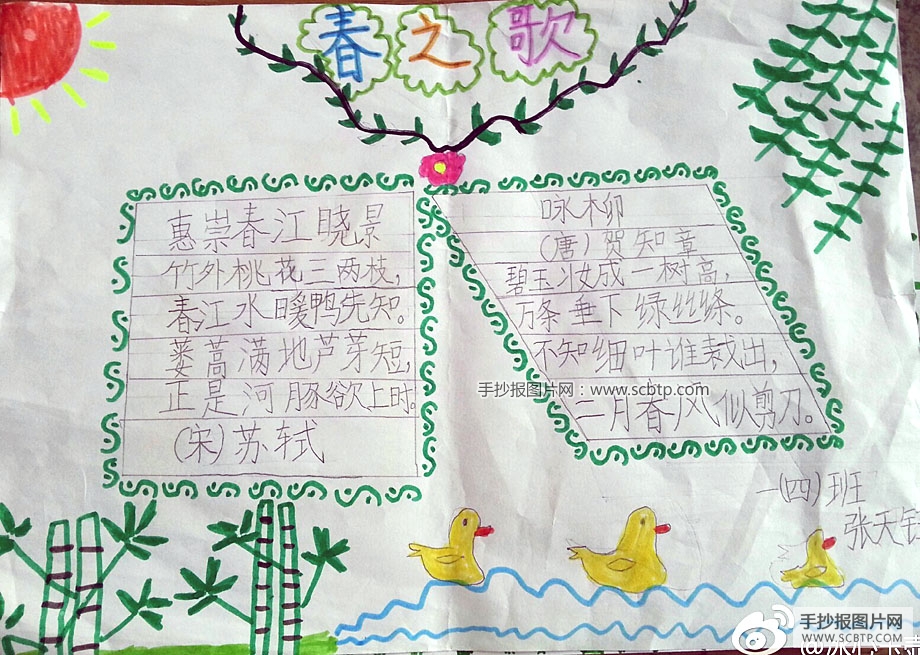 春之歌
惠崇春江晓景
竹外桃花三两枝,
春江水暖鸭先知。
蒌蒿满地芦芽短,
正是河豚欲上时。
(宋)苏轼
咏柳
(唐)贺知章
碧玉妆成一树高,
万条垂下绿丝绦。
不知细叶谁裁出,
二月春风似剪刀。
手抄报图片网:www.scbtp.com
一(四)班
张天
手抄报图片网
WWW.SCBTP.COM